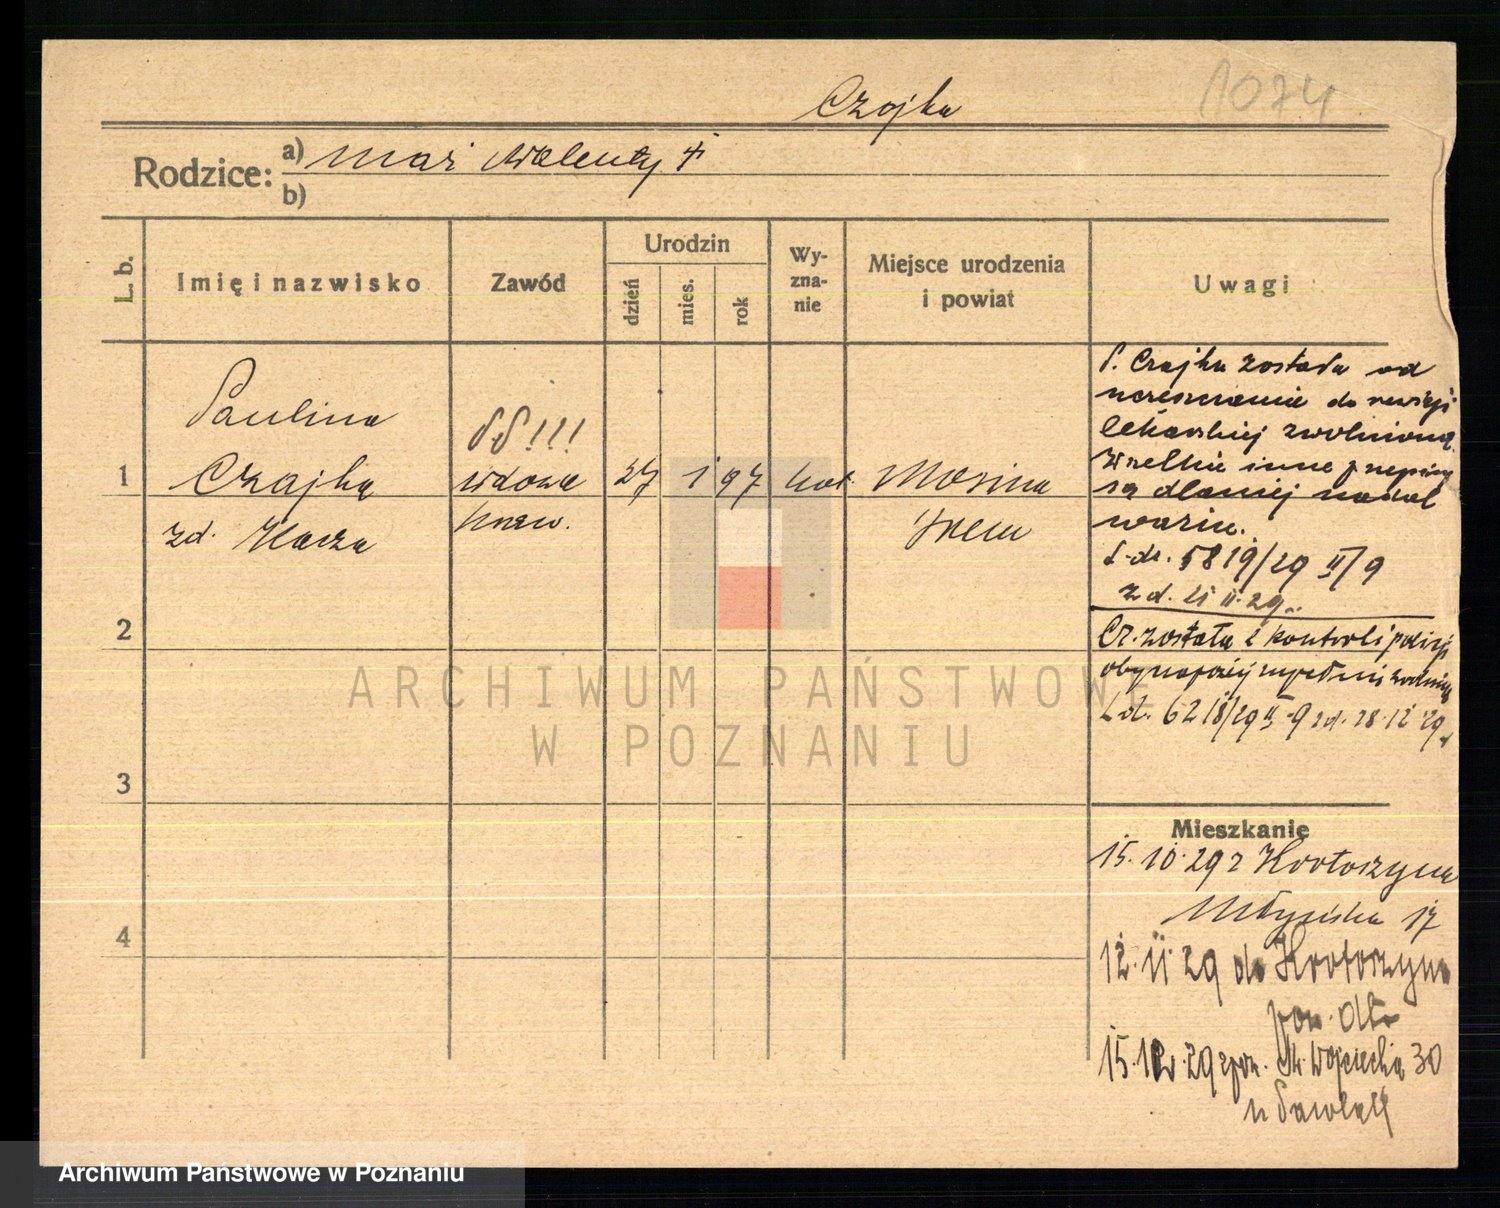 1074
Czajka
Rodzice: a) mąż Walenty +
b)
L. b.
Imię i nazwisko
Zawód
Urodzin
dzień
mies.
rok
Wy-
zna-
nie
Miejsce urodzenia
i powiat
Uwagi
1
Paulina
Czajka
zd. Kacza
!!!
wdowa
kraw.
27 1 97
kat.
Mosina
Śrem
P. Czajka została od
do rewizji
lekarskiej zwolnioną.
Wszelkie inne przepisy
są dla niej nadal
ważne.
L. dz. 5819/29 II/9
z d. 21 11. 29.
Cz. została z kontroli policji
obyczajowej zupełnie
L. d. 6218/29 II 9 z d. 28. 12 29.
2
3
4
Mieszkanie
15. 10. 29 z Krotoszyna
Młyńska 17
12. 11 29 do Krotoszyna
15. 12. 29 Św. Wojciecha 30
u Pawlak
ARCHIWUM PAŃSTWOWE
W POZNANIU
Archiwum Państwowe w Poznaniu